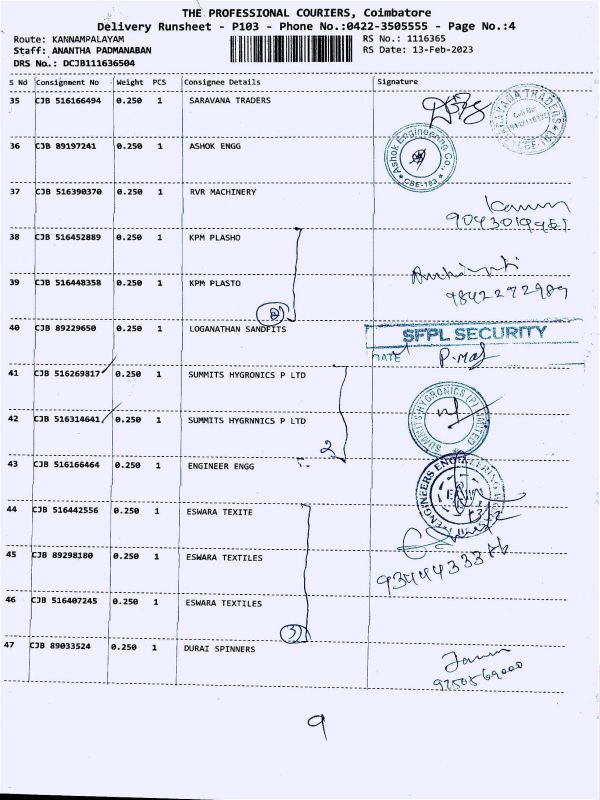 THE PROFESSIONAL COURIERS, Coimbatore
Delivery Runsheet - P103 - Phone No.:0422-3505555 - Page No.:4
Route: KANNAMPALAYAM RS No.: 1116365
Staff: ANANTHA PADMANABAN RS Date: 13-Feb-2023
DRS No.: DCJB111636504
S No Consignment No Weight PCS Consignee Details Signature
35 CJB 516166494 0.250 1 SARAVANA TRADERS
SARAVANA TRADERS
36 CJB 89197241 0.250 1 ASHOK ENGG
Ashok Engineering Co.,
CBE-103
37 CJB 516390370 0.250 1 RVR MACHINERY
38 CJB 516452889 0.250 1 KPM PLASHO
39 CJB 516448358 0.250 1 KPM PLASTO
9842272989
2
40 CJB 89229650 0.250 1 LOGANATHAN SANDFITS
SFPL SECURITY
DATE
41 CJB 516269817 0.250 1 SUMMITS HYGRONICS P LTD
42 CJB 516314641 0.250 1 SUMMITS HYGRNNICS P LTD
SUMMITS HYGRONICS (P) LIMITED
2
43 CJB 516166464 0.250 1 ENGINEER ENGG
44 CJB 516442556 0.250 1 ESWARA TEXITE
45 CJB 89298180 0.250 1 ESWARA TEXTILES
46 CJB 516407245 0.250 1 ESWARA TEXTILES
3
47 CJB 89033524 0.250 1 DURAI SPINNERS
9750569000
9